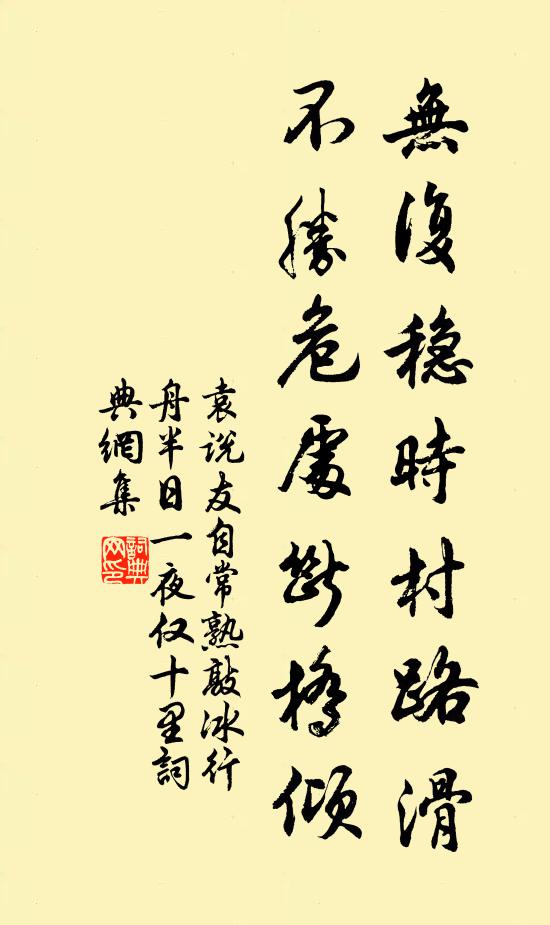 無復穏時村路滑
不勝危處斷橋傾
袁説友自常熟敲冰行
舟半日一夜仅十里詞
典網集
詞典
网印